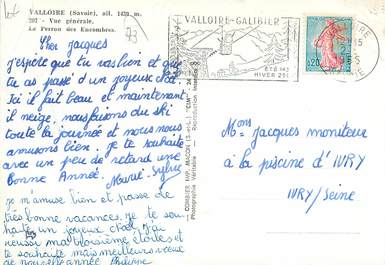 VALLOIRE (Savoie), alt. 1430 m.
202 - Vue générale.
Le Perron des Encombres.
73
Cher Jacques
j'espère que tu vas bien et que
tu as passé d'un joyeux Noël.
Ici il fait beau et maintenant
il neige, nous faisons du ski
toute la journée et nous nous
amusons bien. je te souhaite
avec un peu de retard une
Bonne Année.
Sylvie
je m'amuse bien et passe de
très bonne vacances, je te sou-
haite un joyeux Noël, j'ai
réussi ma troisième étoiles et
te souhaite mais meilleurs vœux
de nouvelle année Philippe
COMBIER IMP. MACON (S.-&-L.) "CIM"
Photographie Véritable Reproduction
VALLOIRE-GALIBIER
ÉTÉ
HIVER
0,20
Mons Jacques moniteur
à la piscine d'IVRY
IVRY/Seine